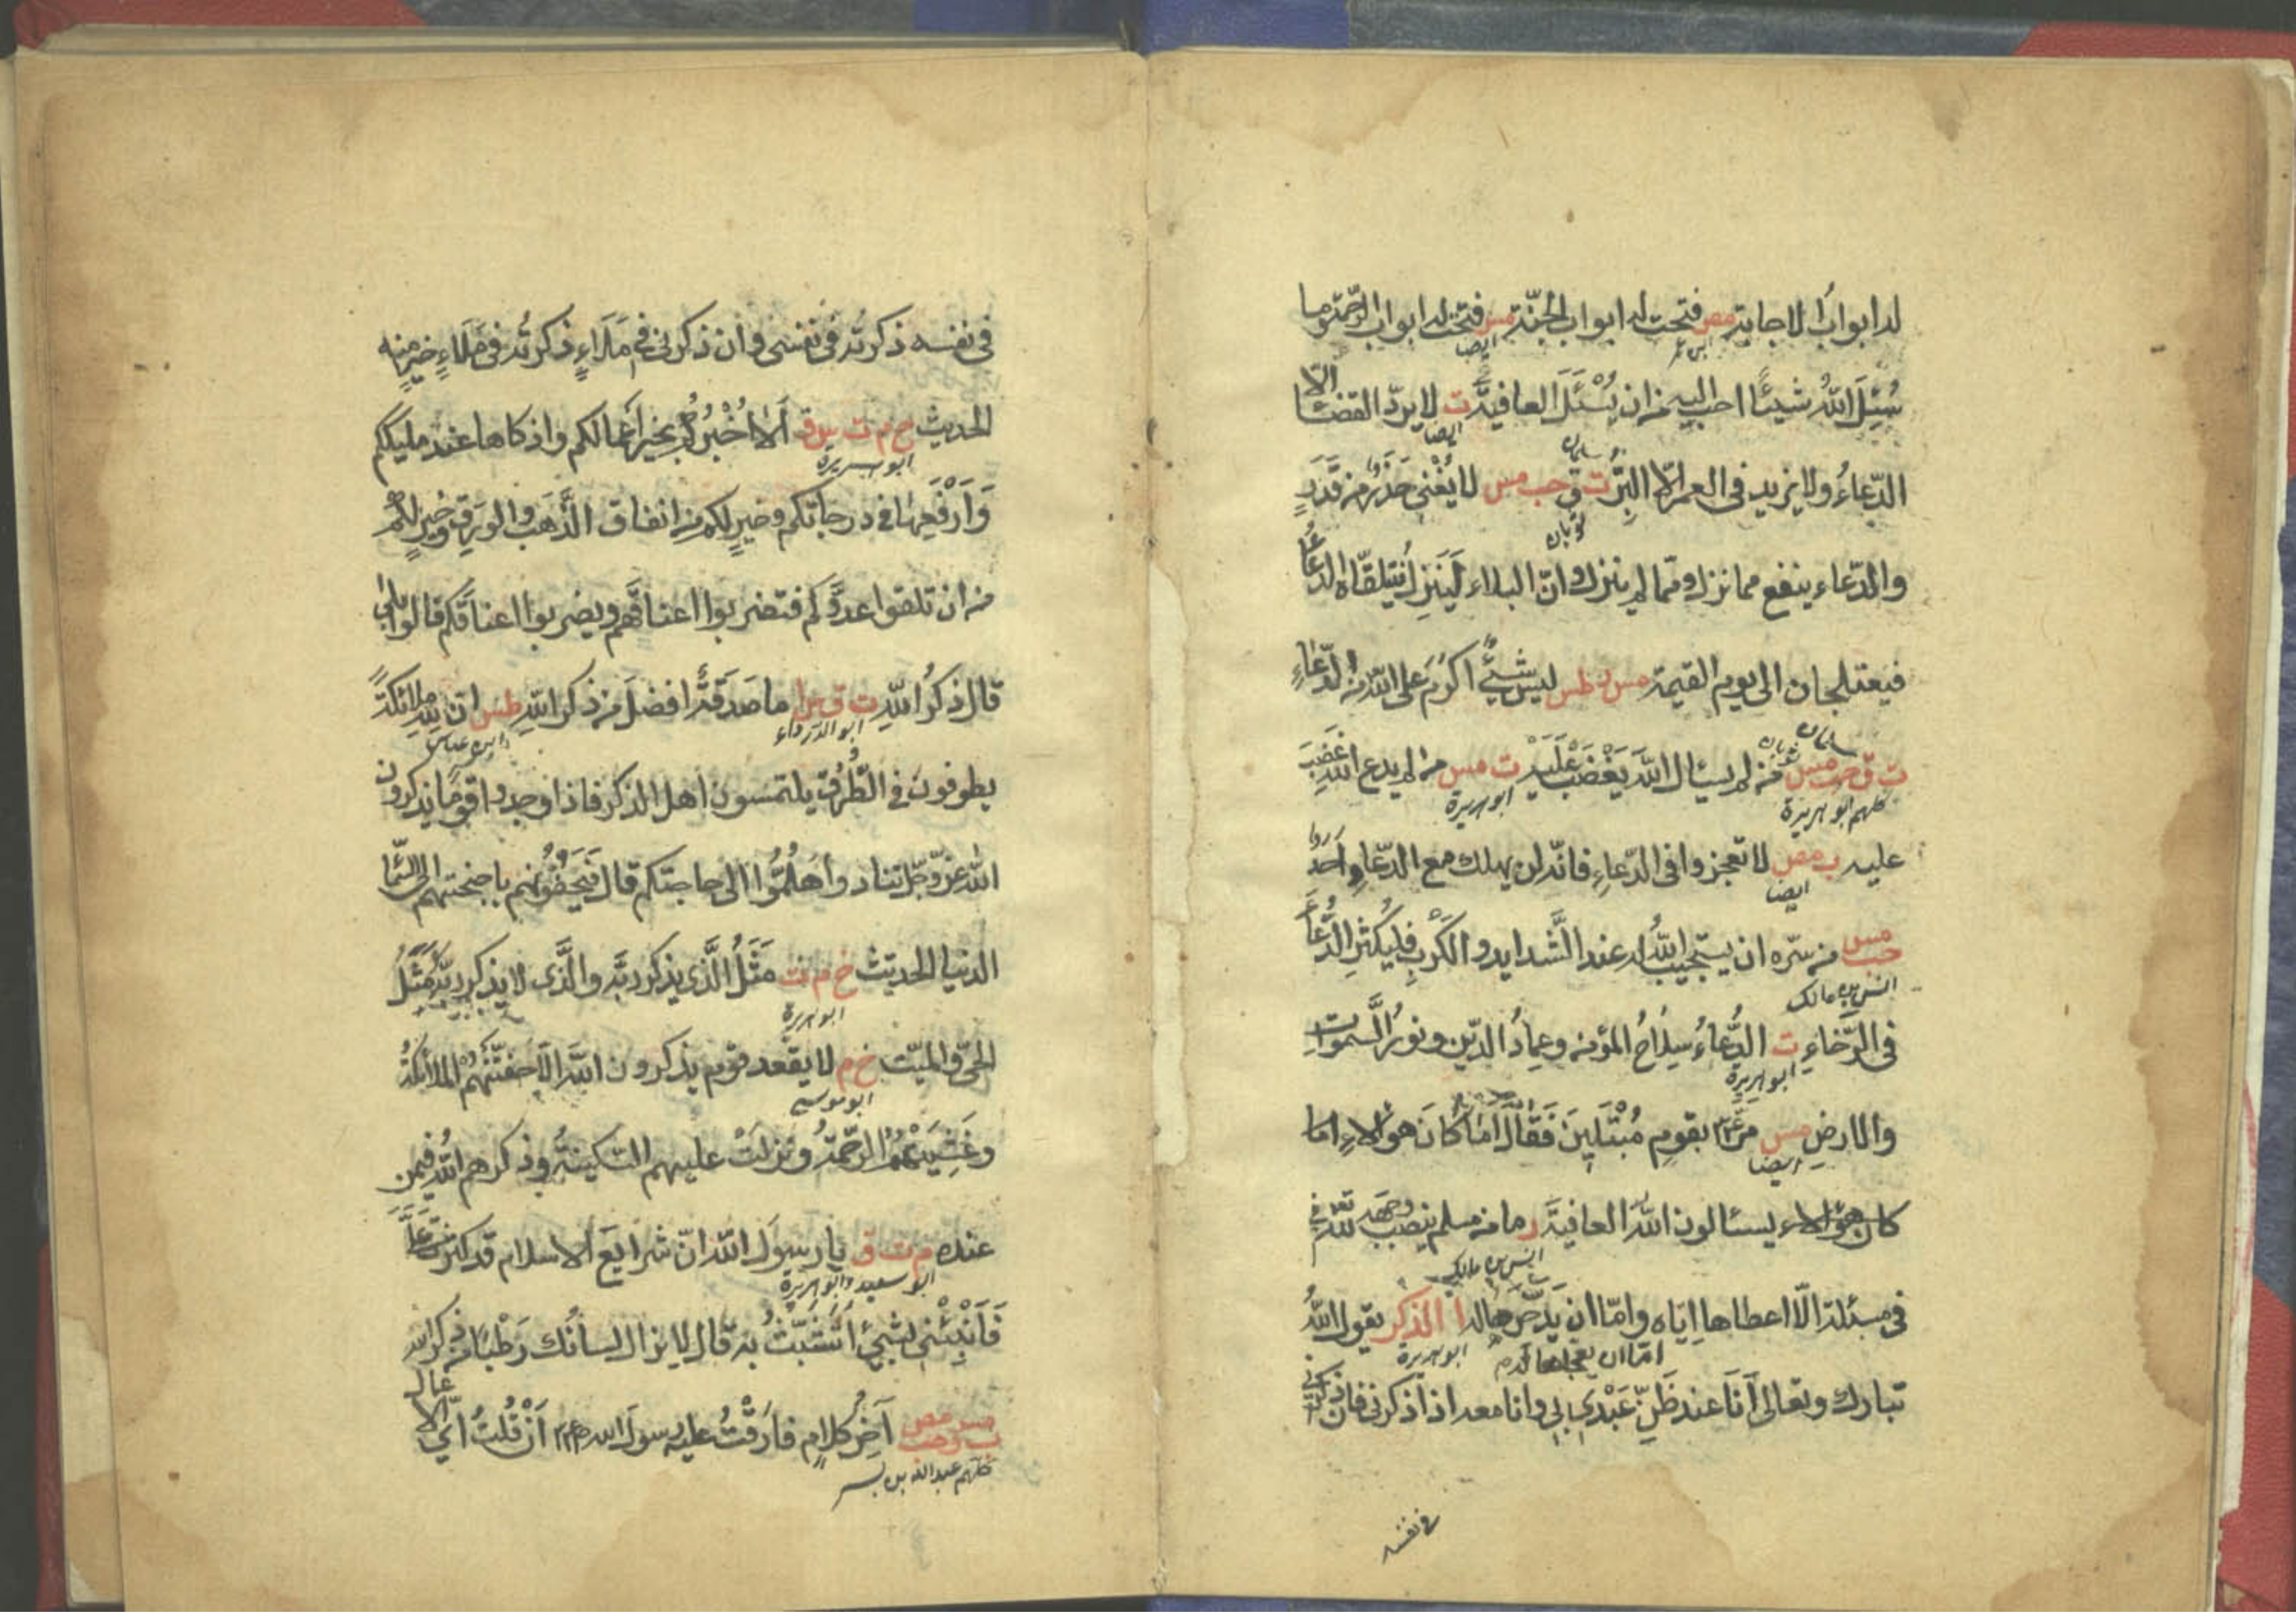 له ابوابُ الاجابة مص فتحت له ابواب الجنّة مس فتحت له ابواب الرّحمة وما
ابن عمر ايضا
سُئِلَ اللهُ شيئًا احب اليه من ان يُسْئَلَ العافيةَ ت لا يردّ القضاءَ الّا
ايضا سلمان
الدّعاءُ ولا يزيد فى العمر الّا البِرُّ ت ق حب مس لا يُغْنى حَذَرٌ من قَدَرٍ
ثوبان
والدّعاء ينفع مما نزل ومّما لم ينزل وانّ البلاء لَيَنزِلُ فيتلقّاه الدّعاءُ
فيعتلجان الى يوم القيمة مس ر طس ليس شئٌ اكرمَ على الله من الدّعاءِ
سلمان ثوبان
ت ق حب مس من لم يسئال اللهَ يَغْضَبْ عَلَيْهِ ت مس من لم يدع اللهَ غَضِبَ
كلهم ابو هريرة ابو هريرة
عليه ب مص لا تعجزوا فى الدّعاءِ فانّه لن يهلك مع الدّعاءِ احدٌ
ايضا
حب مس من سّره ان يستجيب اللهُ له عند الشَّدايد والكَرْبِ فليُكثِرِ الدُّعَاءَ
انس بن مالك
فى الرَّخاءِ ت الدُّعاءُ سِلَاحُ المؤمنِ وعِمادُ الدّين ونورُ السَّموات
ابو هريرة
والارضِ مس مرّ بقومٍ مُبْتَلِينَ فَقَالَ اَمَا كَانَ هؤلاءِ
ايضا
يسئالون اللهَ العافيةَ ر ما من مسلم ينصب وجهَه لله تعالى
انس بن مالك
فى مسئلة الّا اعطاها اِيّاه وامّا ان يدّخرها له ا الذكر يقول اللهُ
امّا ان يعجلها له ابو هريرة
تبارك وتعالى اَنَا عند ظَنِّ عَبْدِى بى وانا معه اذا ذكرنى فان ذكرنى
فى نفسه
فى نفسه ذكرتُه فى نفسى وان ذكرنى فى مَلَاءٍ ذكرتُه فى مَلَاءٍ خيرٍ منه
الحديث خ م ت س ق اَلَا اُخْبِرُكم بخيرِ اَعمالكم وازكاها عند مليككم
ابو هريرة
وَاَرْفَعِهَا فى درجاتكم وخيرٍ لكم من انفاق الذَّهَب والوَرِق وخيرٍ لكم
من ان تلقوا عدوَّكم فتضربوا اعناقَهم ويضربوا اعناقَكم قالوا بلى
قال ذكرُ اللهِ ت ق مس ا ما صَدَقَةٌ افضلَ من ذكر اللهِ طس ان لله ملائكةً
ابو الدرداء ابن عباس
يطوفون فى الطُّرُق يلتمسون اهل الذكر فاذا وجدوا قومًا يذكرون
اللهَ عزّ وجلّ تنادوا هَلُمُّوا الى حاجتكم قال فَيَحُفُّونهم باجنحتهم الى السّماءِ
الدنيا الحديث خ م ت مَثَلُ الَّذى يذكر ربَّه والَّذى لا يذكر ربَّه مَثَلُ
ابو هريرة
الحىّ والميّت خ م لا يقعد قوم يذكرون اللهَ الّا حفّتهُمُ الملائكةُ
ابو موسى
وغَشِيَتْهُمُ الرّحْمةُ ونزلَتْ عليهم السّكينةُ وذكرهم اللهُ فيمن
عنده م ت ق يا رسولَ اللهِ انّ شرايعَ الاسلامِ قد كثرت علىَّ
ابو سعيد وابو هريرة
فَاَنْبِئْنى بشئٍ اَتشبّثُ به قال لا يزال لسانُك رَطْبًا من ذكر الله
مس مص ت ق حب آخرُ كلامٍ فارَقْتُ عليه رسولَ الله اَنْ قُلتُ اَىُّ الاعمال
كلهم عبد الله بن بسر